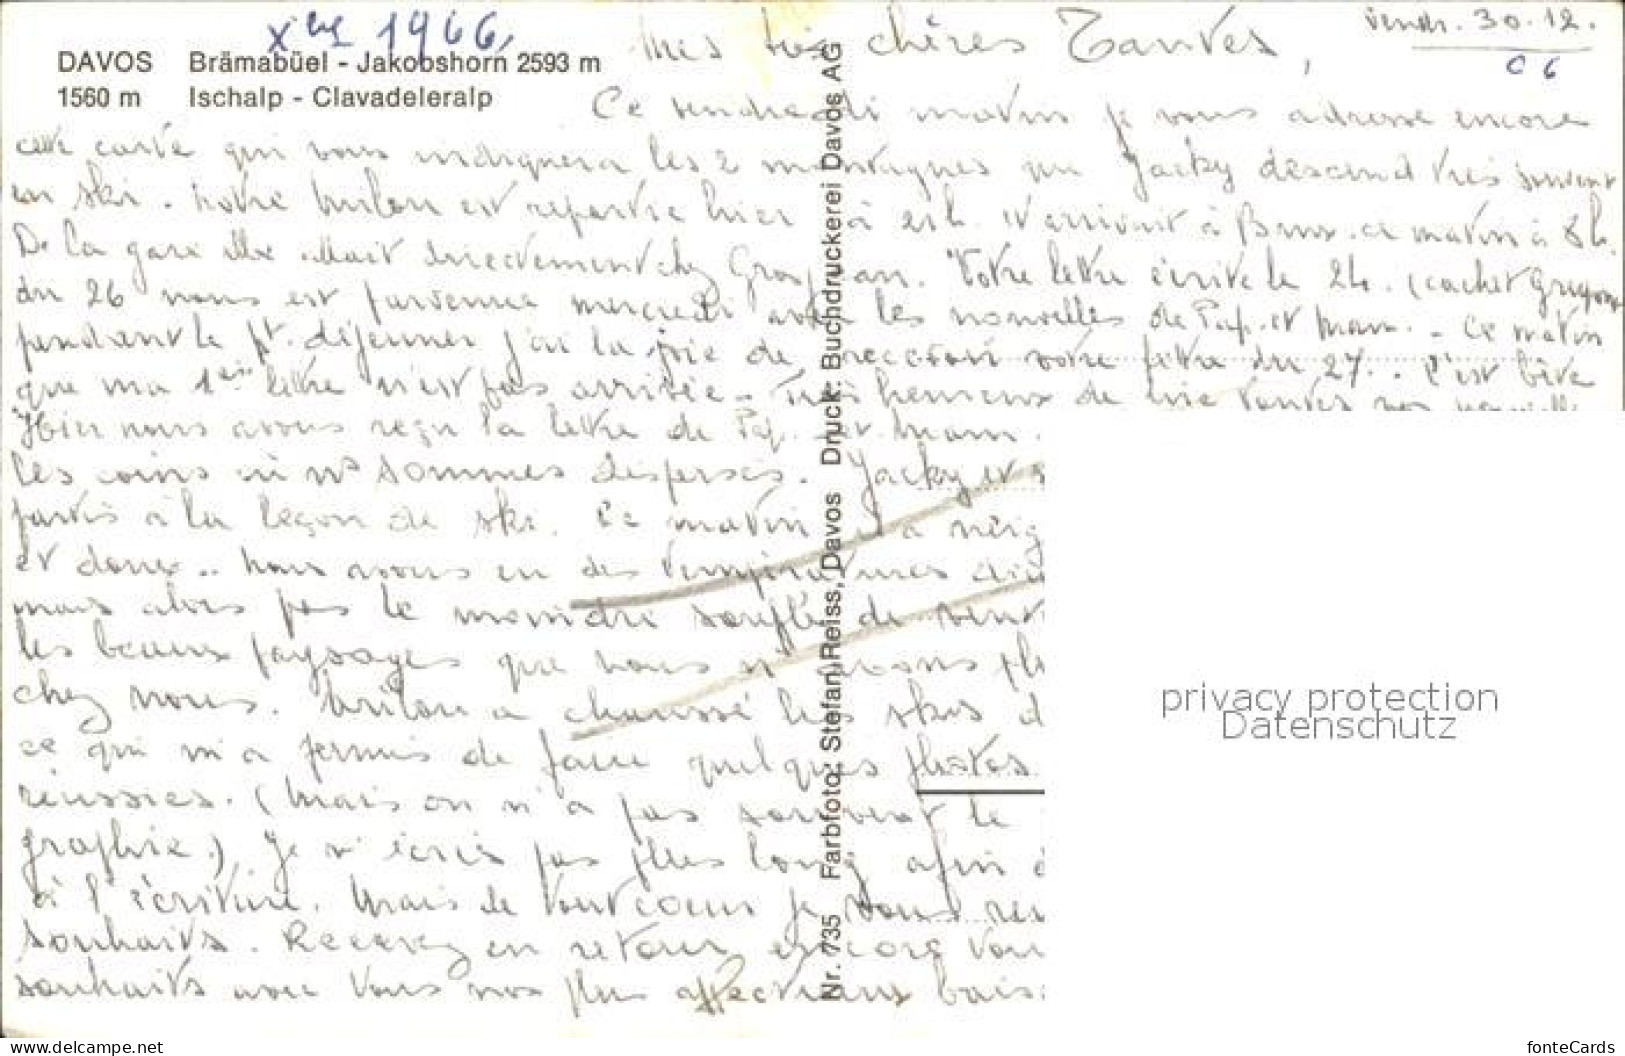 Xbre 1966
DAVOS Brämabüel - Jakobshorn 2593 m
1560 m Ischalp - Clavadeleralp
Mes trois chères Tantes,
Vendr. 30.12.
66
Ce vendredi matin je vous adresse encore
cette carte qui vous indiquera les 2 montagnes que Jacky descend très souvent
en ski. Notre est repartie hier à 21h. et arrivait à ce matin à 8h.
De la gare elle allait directement chez Grosjean. Votre lettre écrite le 24. (cachet
du 26 nous est parvenue mercredi avec les nouvelles de Pap. et Mam. - Ce matin
pendant le pt. déjeuner j'ai la joie de recevoir votre lettre du 27. . C'est bête
que ma 1ère lettre n'est pas arrivée - Très heureux de lire toutes vos
Hier nous avons reçu la lettre de Pap. et Mam.
les coins où ns sommes dispersés. Jacky et
partis à la leçon de ski. Ce matin il a
et doux.. Nous avons eu des températures
mais alors pas le moindre souffle de vent
les beaux paysages que nous n'avons
chez nous. a chaussé les skis
ce qui m'a permis de faire quelques photos
réussies. (Mais on n'a pas souvent le
graphie.) Je n'écris pas plus long afin
à l'écriture. Mais de tout coeur je vous
souhaits. Recevez en retour encore
souhaits avec tous nos plus affectueux
Nr. 735 Farbfoto: Stefan Reiss, Davos Druck: Buchdruckerei Davos AG
privacy protection
Datenschutz
www.delcampe.net
fonteCards